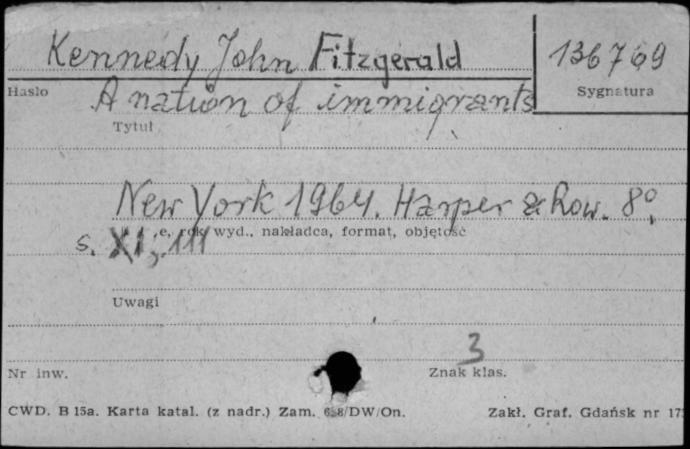 Kennedy John Fitzgerald
136769
Hasło
Sygnatura
A nation of immigrants
Tytuł
New York 1964. Harper & Row. 8°.
s. XI, 111
e, rok wyd., nakładca, format, objętość
Uwagi
3
Nr inw.
Znak klas.
CWD. B 15a. Karta katal. (z nadr.) Zam. /DW/On.
Zakł. Graf. Gdańsk nr